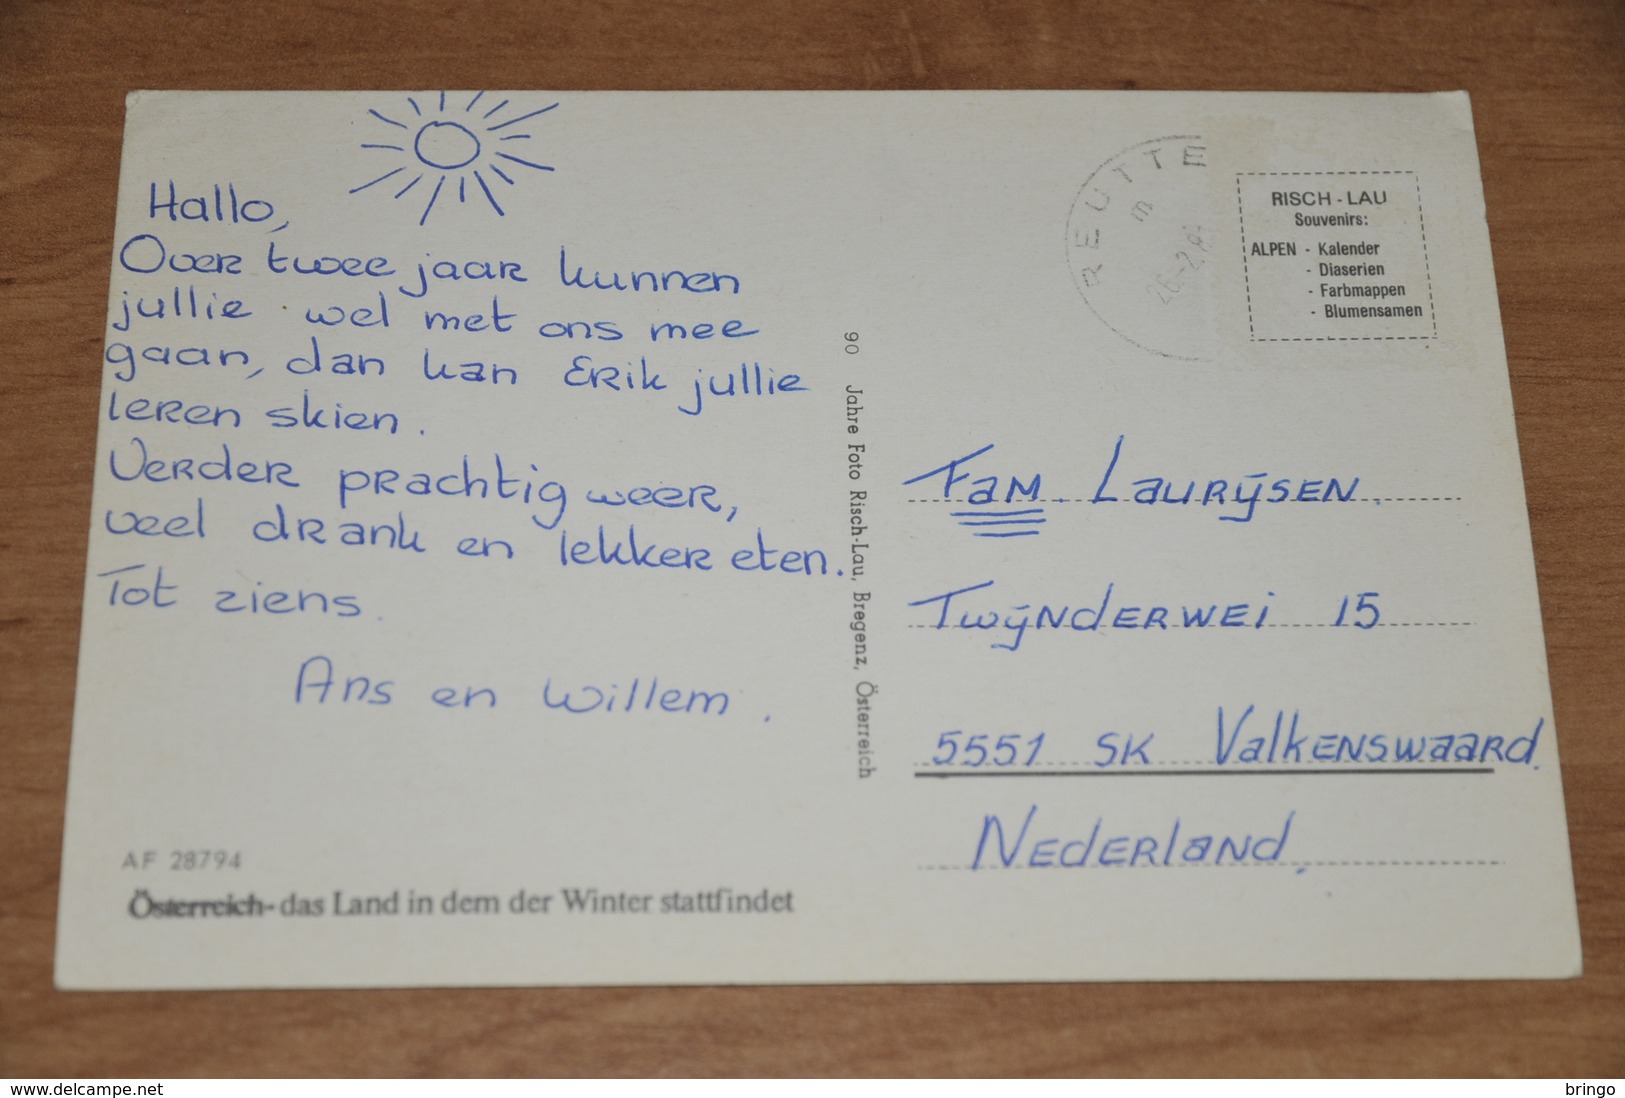 Hallo,
Over twee jaar kunnen
jullie wel met ons mee
gaan, dan kan Erik jullie
leren skien.
Verder prachtig weer,
veel drank en lekker eten.
Tot ziens.
Ans en Willem.
AF 28794
Österreich - das Land in dem der Winter stattfindet
90 Jahre Foto Risch-Lau, Bregenz, Österreich
REUTTE
RISCH - LAU
Souvenirs:
ALPEN - Kalender
- Diaserien
- Farbmappen
- Blumensamen
Fam. Laurijsen.
Twijnderwei 15
5551 SK Valkenswaard.
Nederland.
www.delcampe.net
bringo